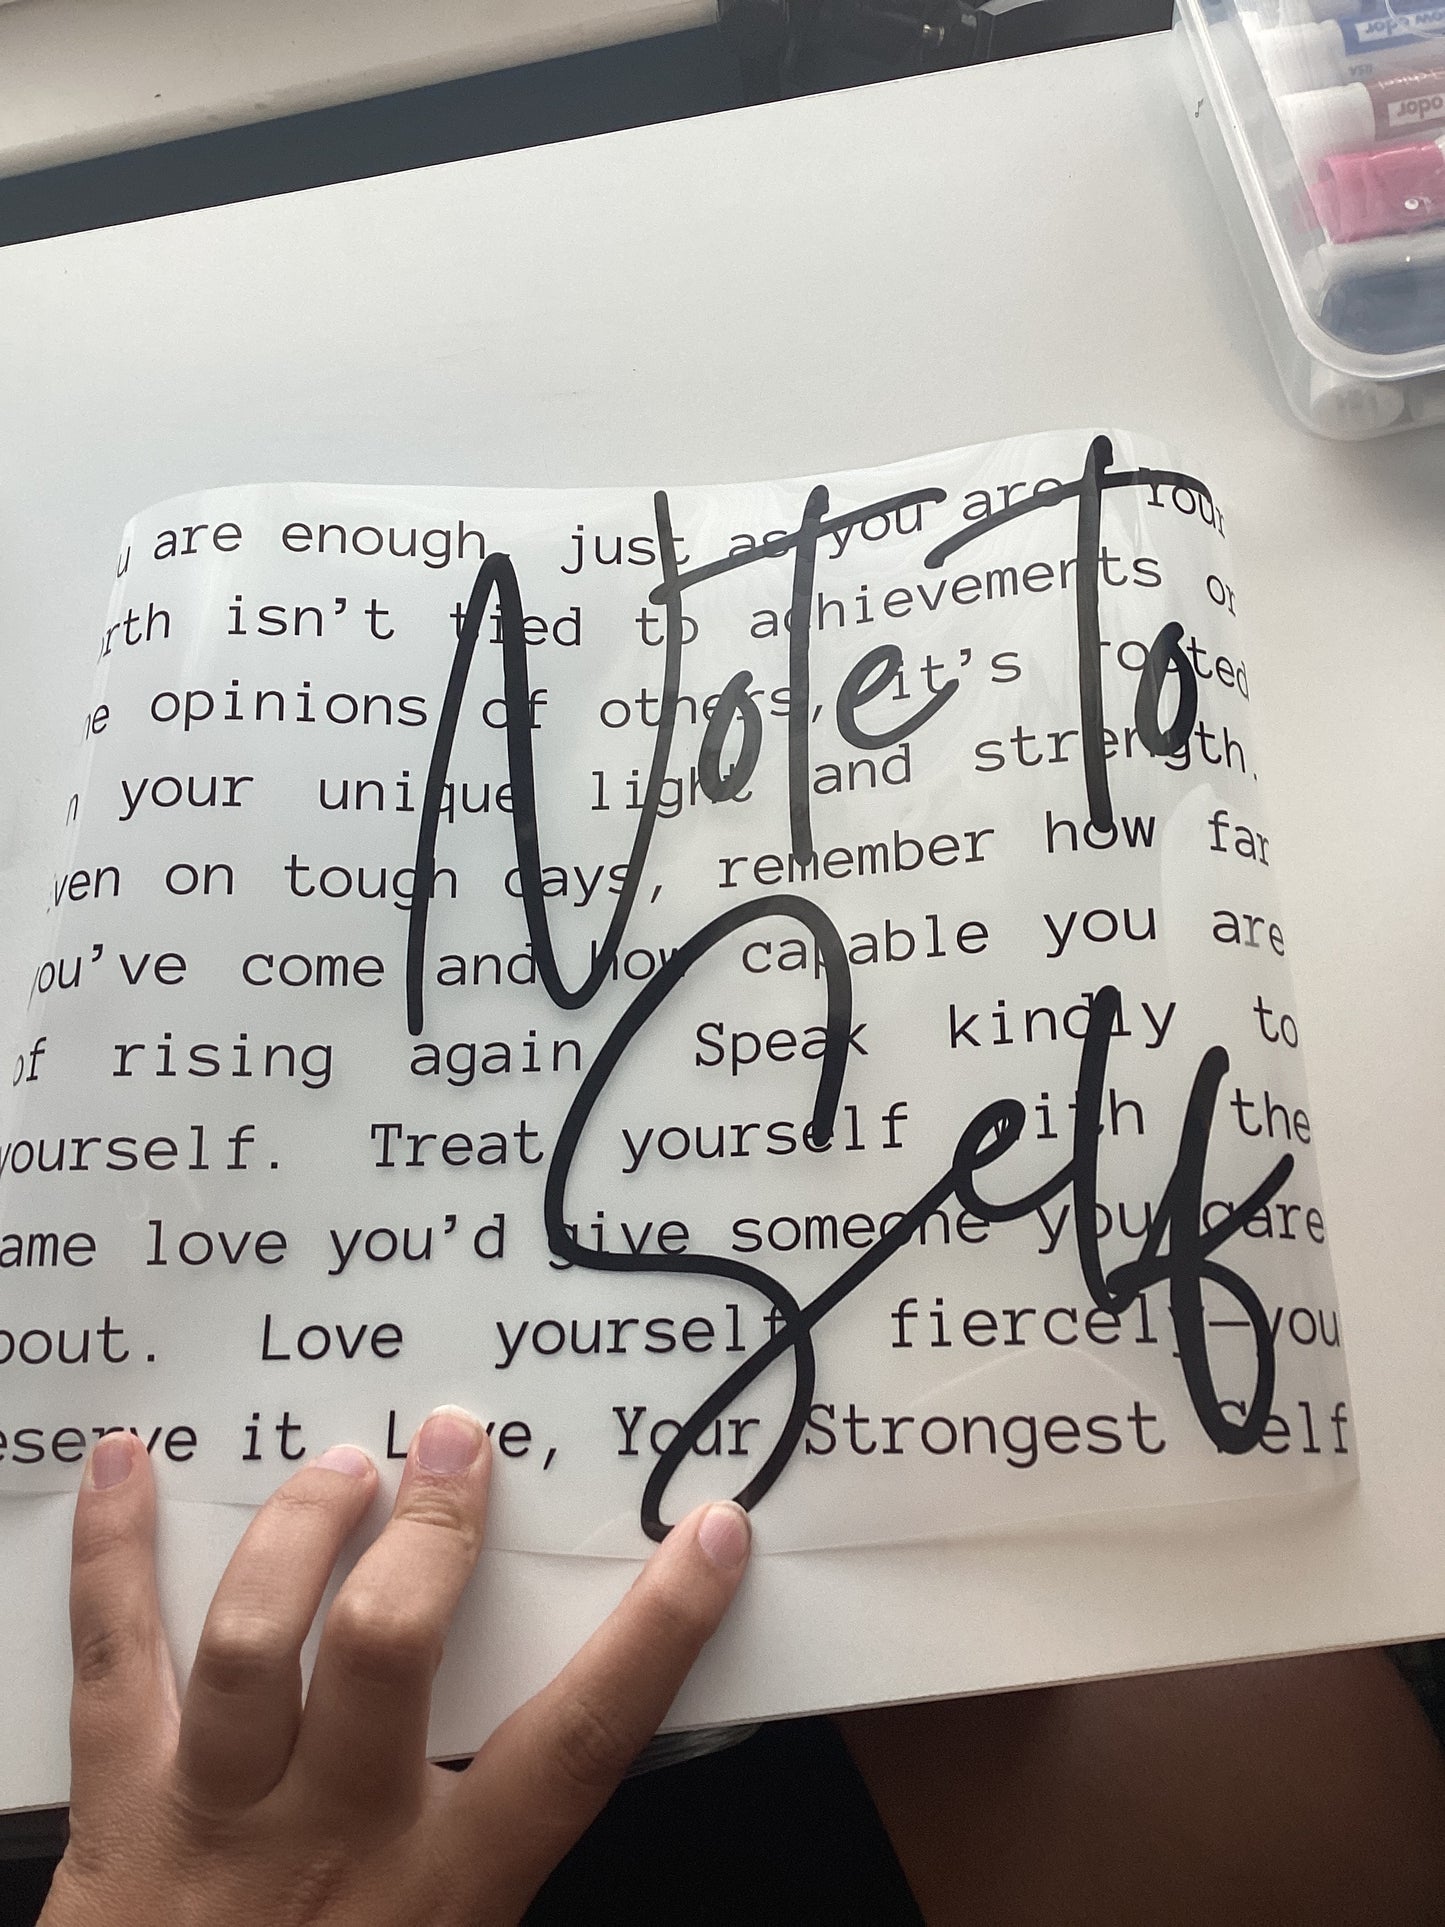 odor
odor
Note To
Self
u are enough, just as you are. Your
rth isn't tied to achievements or
he opinions of others, it's rooted
n your unique light and strength.
ven on tough days, remember how far
you've come and how capable you are
of rising again. Speak kindly to
yourself. Treat yourself with the
ame love you'd give someone you care
bout. Love yourself fiercely—you
eserve it. Love, Your Strongest Self